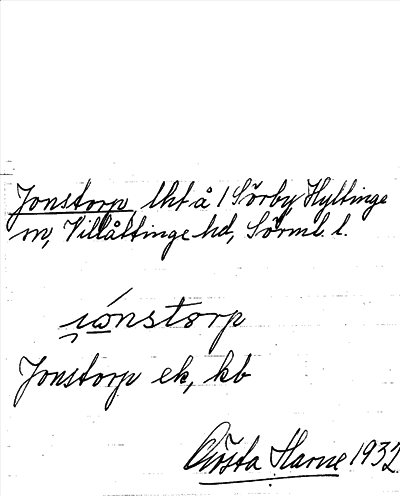 Jonstorp, lht å 1 Sörby, Hyltinge
sn, Villåttinge hd, Sörml. l.
i̯ώnstorp
Jonstorp ek, kb
Gösta Harne 1932